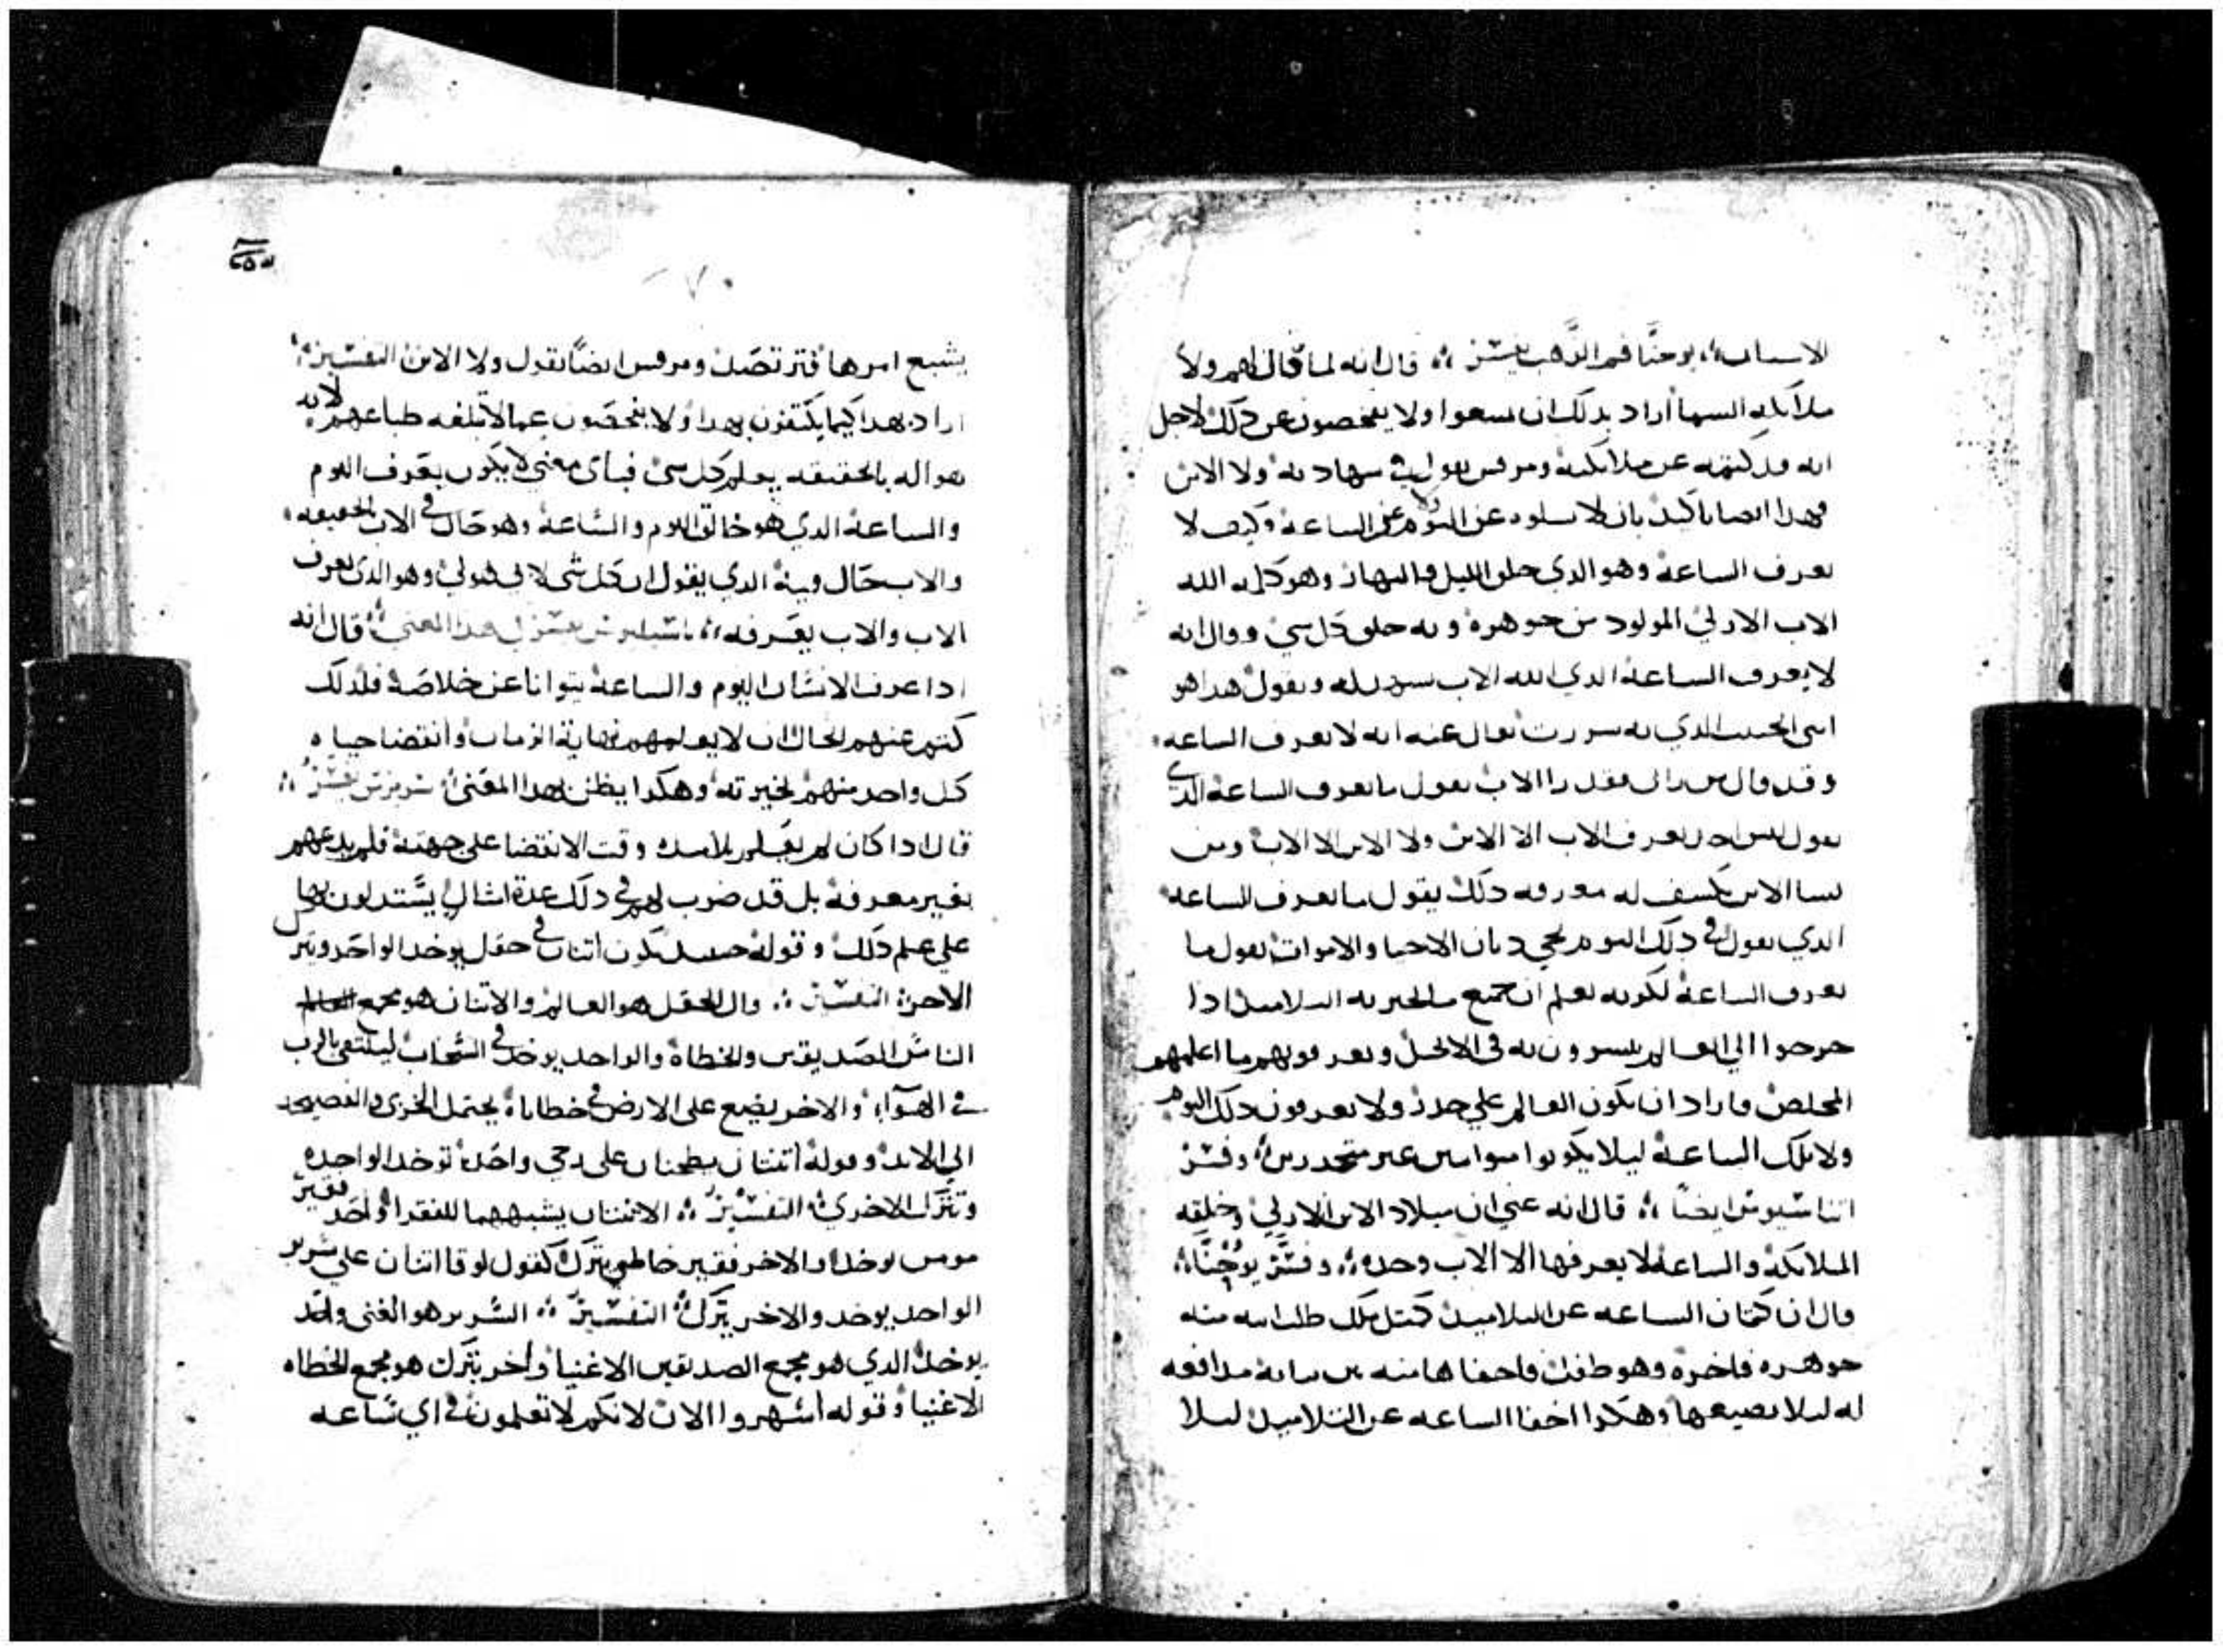 الاسباب يوحنا فم الذهب يفسر قال انه لما قال لهم ولا
ملايكه السما اراد بدلك ان يسعوا ولا يفحصون عن دلك لاجل
انه قد كتمه عن ملايكته ومرقس يقول في شهادته ولا الابن
فهدا ايضا تاكيد بان لا يسلوه عن اليوم ولا عن الساعة وكيف لا
يعرف الساعة وهو الدي خلق الليل والنهار وهو كلمه الله
الاب الازلي المولود من جوهره وبه خلق كل شي وقال انه
لا يعرف الساعة الدي الله الاب يشهد له ويقول هدا هو
ابني الحبيب الدي به سررت يقال عنه انه لا يعرف الساعه
وقد قال من راني فقد راا الاب يقول ما يعرف الساعة الدي
يقول ليس احد يعرف الاب الا الابن ولا الابن الا الاب ومن
يسا الابن يكسف له معرفه دلك يقول ما يعرف الساعة
الدي يقول في دلك اليوم يجي ديان الاحيا والاموات يقول ما
يعرف الساعة لكونه يعلم ان جميع ما اخبر به التلاميد ادا
خرجوا الي العالم يبسرون به في الانجيل ويعرفونهم ما اعلمهم
المخلص فاراد ان يكون العالم علي حدر ولا يعرفون دلك اليوم
ولا تلك الساعة ليلا يكونوا متوانيين غير متحدرين وفسر
اتناسيوس ايضا قال انه عني ان ميلاد الابن الازلي وخلقه
الملايكة والساعة لا يعرفها الا الاب وحده وفسر يوحنا
قال ان كتمان الساعه عن التلاميد كمتل ملك طلب ابنه منه
جوهره فاخرة وهو طفل فاخفاها منه من مدافعه
له ليلا يضيعها وهكدا اخفا الساعه عن التلاميد ليلا
٧٠
يشيع امرها فترتصل ومرقس ايضا يقول ولا الابن التفسير
اراد بهدا كيما يكتفون بهدا ولا يفحصون عما لا تبلغه طباعهم لانه
هو اله بالحقيقه يعلم كل شي فباي معني لا يكون يعرف اليوم
والساعة الدي هو خالق اليوم والساعة وهو حال في الاب بالحقيقه
والاب حال فيه الدي يقول ان كل شي لابي هو لي وهو الدي يعرف
الاب والاب يعرفه باسيليوس يفسر هدا المعني قال انه
ادا عرف الانسان اليوم والساعة يتوانا عن خلاصه فلدلك
كتم عنهم الحال ان لا يعلمهم نهاية الزمان وانقضا حياه
كل واحد منهم لخيرته وهكدا يظن بهدا المعني يفسر
قال ادا كان لم يعلم تلاميده وقت الانقضا علي جهته فلم يدعهم
بغير معرفة بل قد ضرب لهم في دلك عدة امثال يستدلون بها
علي علم دلك وقوله حينيد يكون اتنان في حقل يوخد الواحد ويترك
الاخر التفسير قال الحقل هو العالم والاتنان هو مجمع
الناس الصديقين والخطاة والواحد يوخد في السحاب ليلتقي بالرب
في الهوآ والاخر يضيع علي الارض في خطاياه يحتمل الخزي والفضيحه
الي الابد وقوله اتنتان يطحنان علي رحي واحده توخد الواحده
وتترك الاخري التفسير الاتنتان يشبههما للفقرا واحد فقير
مومن يوخد والاخر فقير خاطي يترك كقول لوقا اتنان علي سرير
الواحد يوخد والاخر يترك التفسير السرير هو الغني واحد
يوخد الدي هو مجمع الصديقين الاغنيا واخر يترك هو مجمع الخطاه
الاغنيا وقوله اسهروا الان لانكم لا تعلمون في اي ساعه